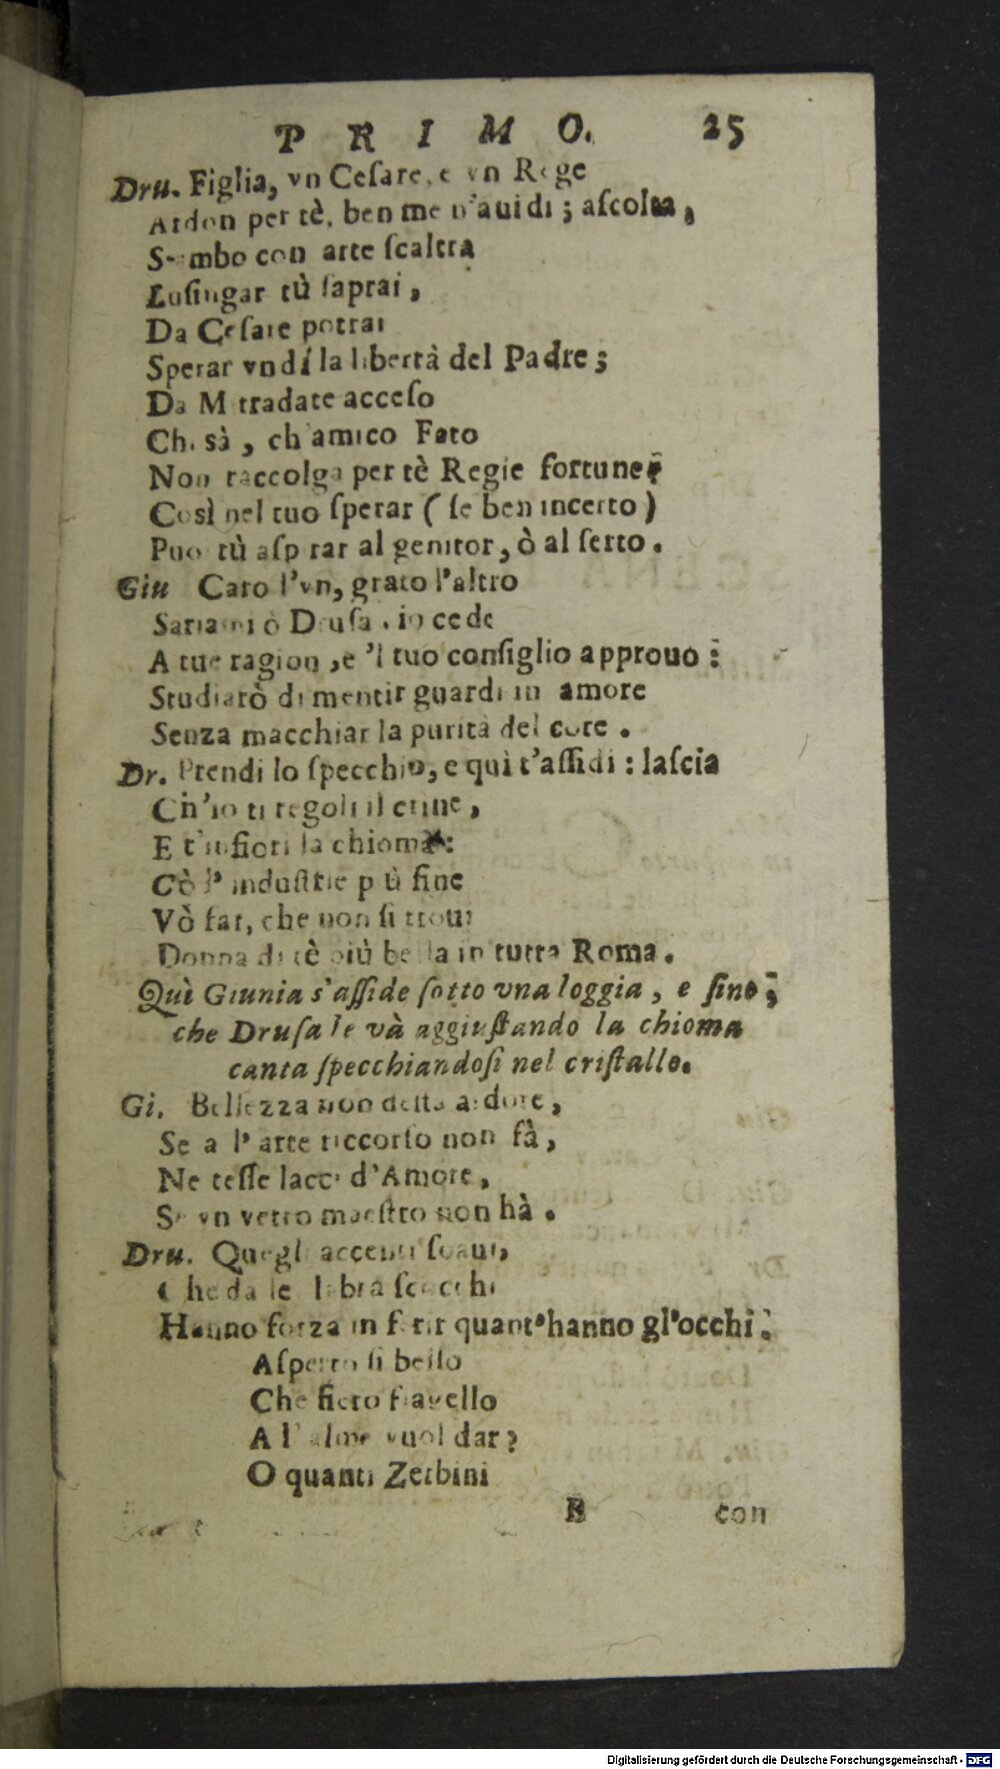 PRIMO. 25
Dru. Figlia, vn Ceſare, e vn Rege
Ardon per tè, ben me n'auidi; aſcolta,
S'ambo con arte ſcaltra
Luſingar tù ſaprai,
Da Ceſare potrai
Sperar vndì la libertà del Padre;
Da Mitradate acceſo
Chi sà, ch'amico Fato
Non raccolga per tè Regie fortune?
Così nel tuo ſperar (ſe ben incerto)
Puoi tù aſpirar al genitor, ò al ſerto.
Giu Caro l'vn, grato l'altro
Sariami ò Druſa. io cedo
A tue ragion, e 'l tuo conſiglio approuo:
Studiarò di mentir guardi in amore
Senza macchiar la purità del core.
Dr. Prendi lo ſpecchio, e quì t'aſſidi: laſcia
Ch'io ti regoli il crine,
E t'infiori la chioma:
Cò l'induſtrie più fine
Vò far, che non ſi troui
Donna di tè più bella in tutta Roma.
Quì Giunia s'aſſide ſotto vna loggia, e ſino,
che Druſa le và aggiuſtando la chioma
canta ſpecchiandoſi nel criſtallo.
Gi. Bellezza non deſta ardore,
Se a l'arte riccorſo non fà,
Ne teſſe lacci d'Amore,
Se vn vetro maeſtro non hà.
Dru. Quegli accenti ſoaui,
Che da le labra ſcocchi
Hanno forza in ferir quant'hanno gl'occhi.
Aſpetto ſi bello
Che fiero flagello
A l'alme vuol dar?
O quanti Zerbini
B con
Digitalisierung gefördert durch die Deutsche Forschungsgemeinschaft - DFG